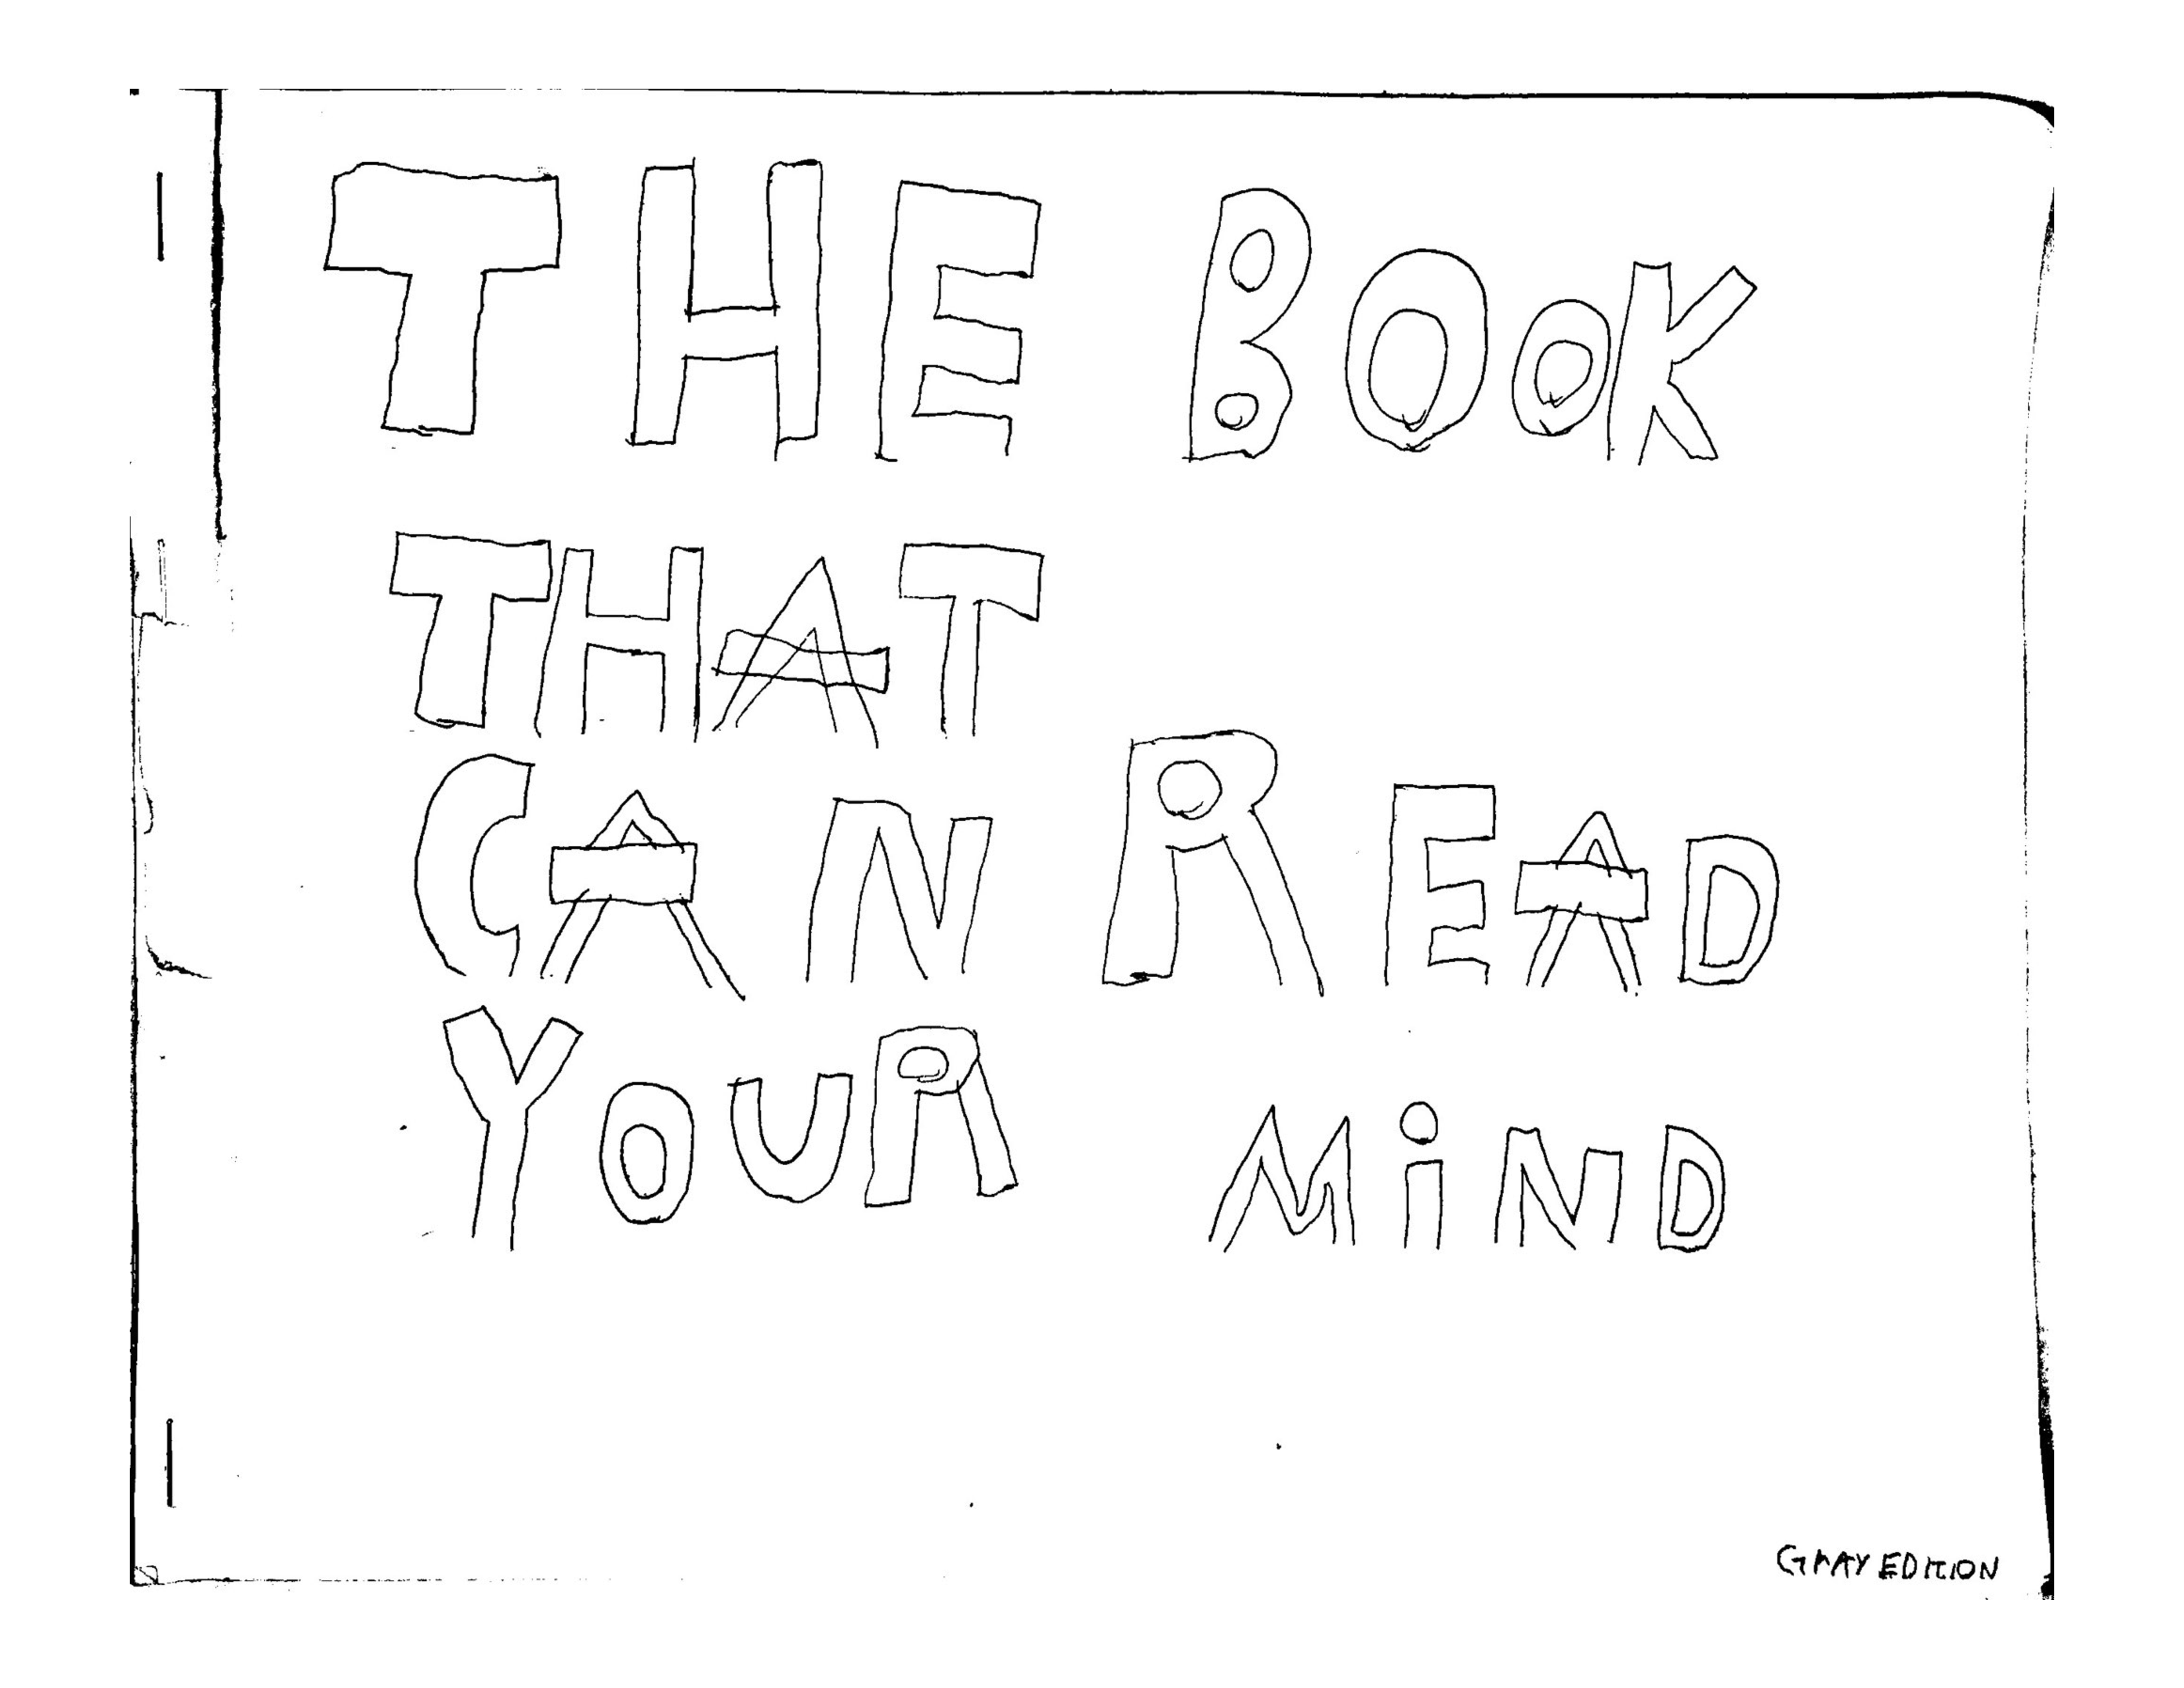 THE BOOK
THAT
CAN READ
YOUR MiND
GRAY EDITION